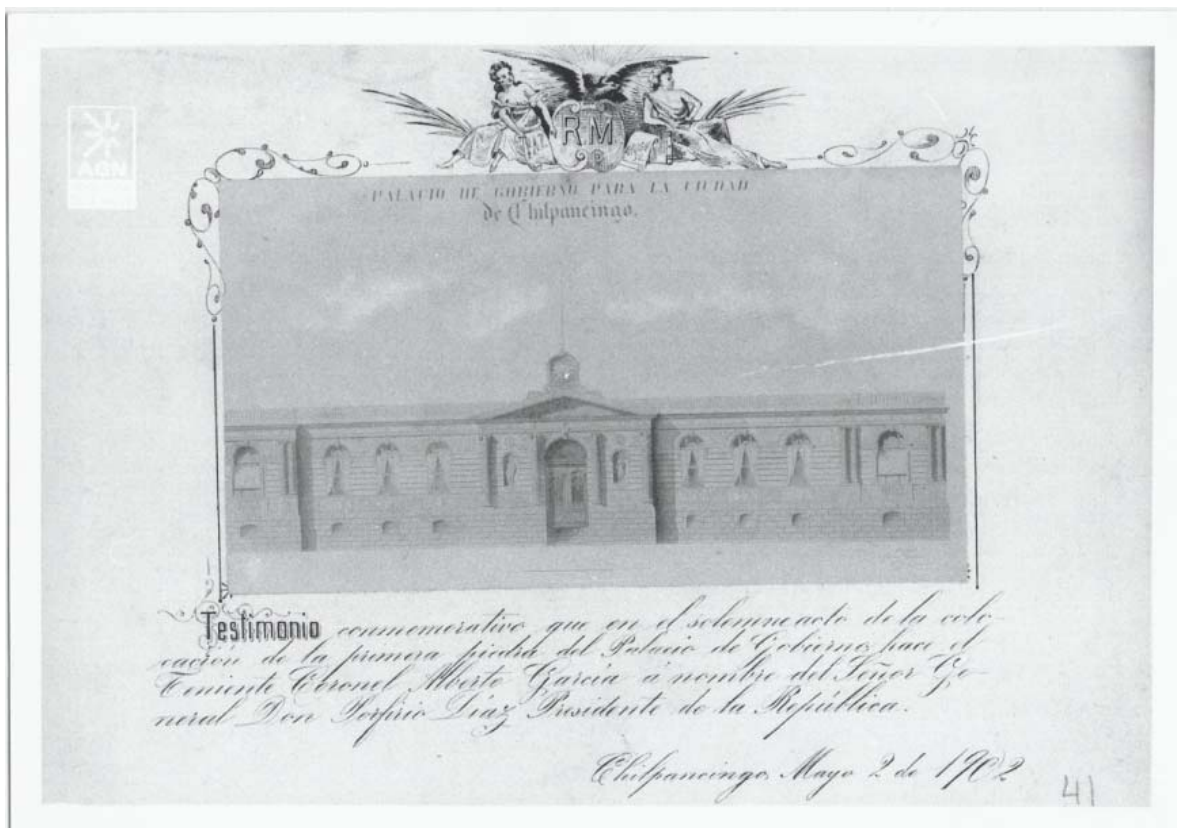 AGN
RM
PALACIO DE GOBIERNO PARA LA CIUDAD
de Chilpancingo.
Testimonio conmemorativo que en el solemne acto de la colo-
cación de la primera piedra del Palacio de Gobierno, hace el
Teniente Coronel Alberto García á nombre del Señor Ge-
neral Don Porfirio Díaz Presidente de la República.
Chilpancingo, Mayo 2 de 1902
41